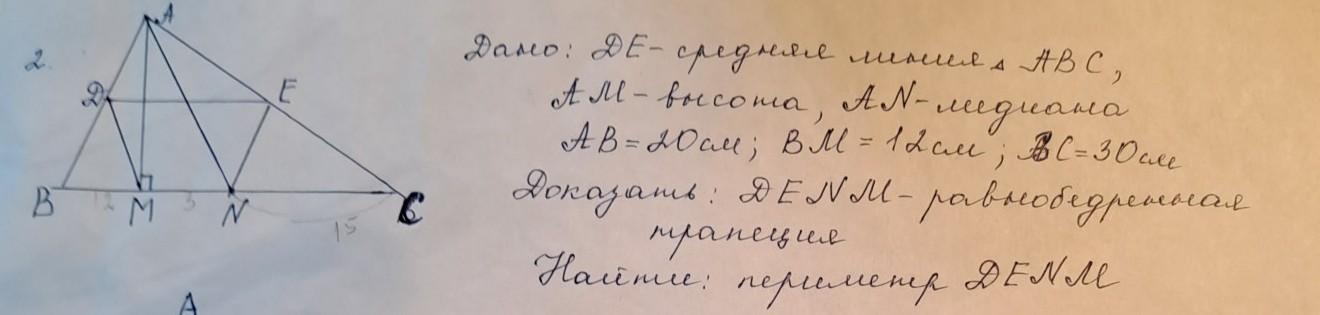 2.
A
D
E
B
12
M
3
N
15
C
A
Дано: DE - средняя линия △ ABC,
AM - высота, AN - медиана
AB = 20 см; BM = 12 см; BC = 30 см
Доказать: DENM - равнобедренная
трапеция
Найти: периметр DENM